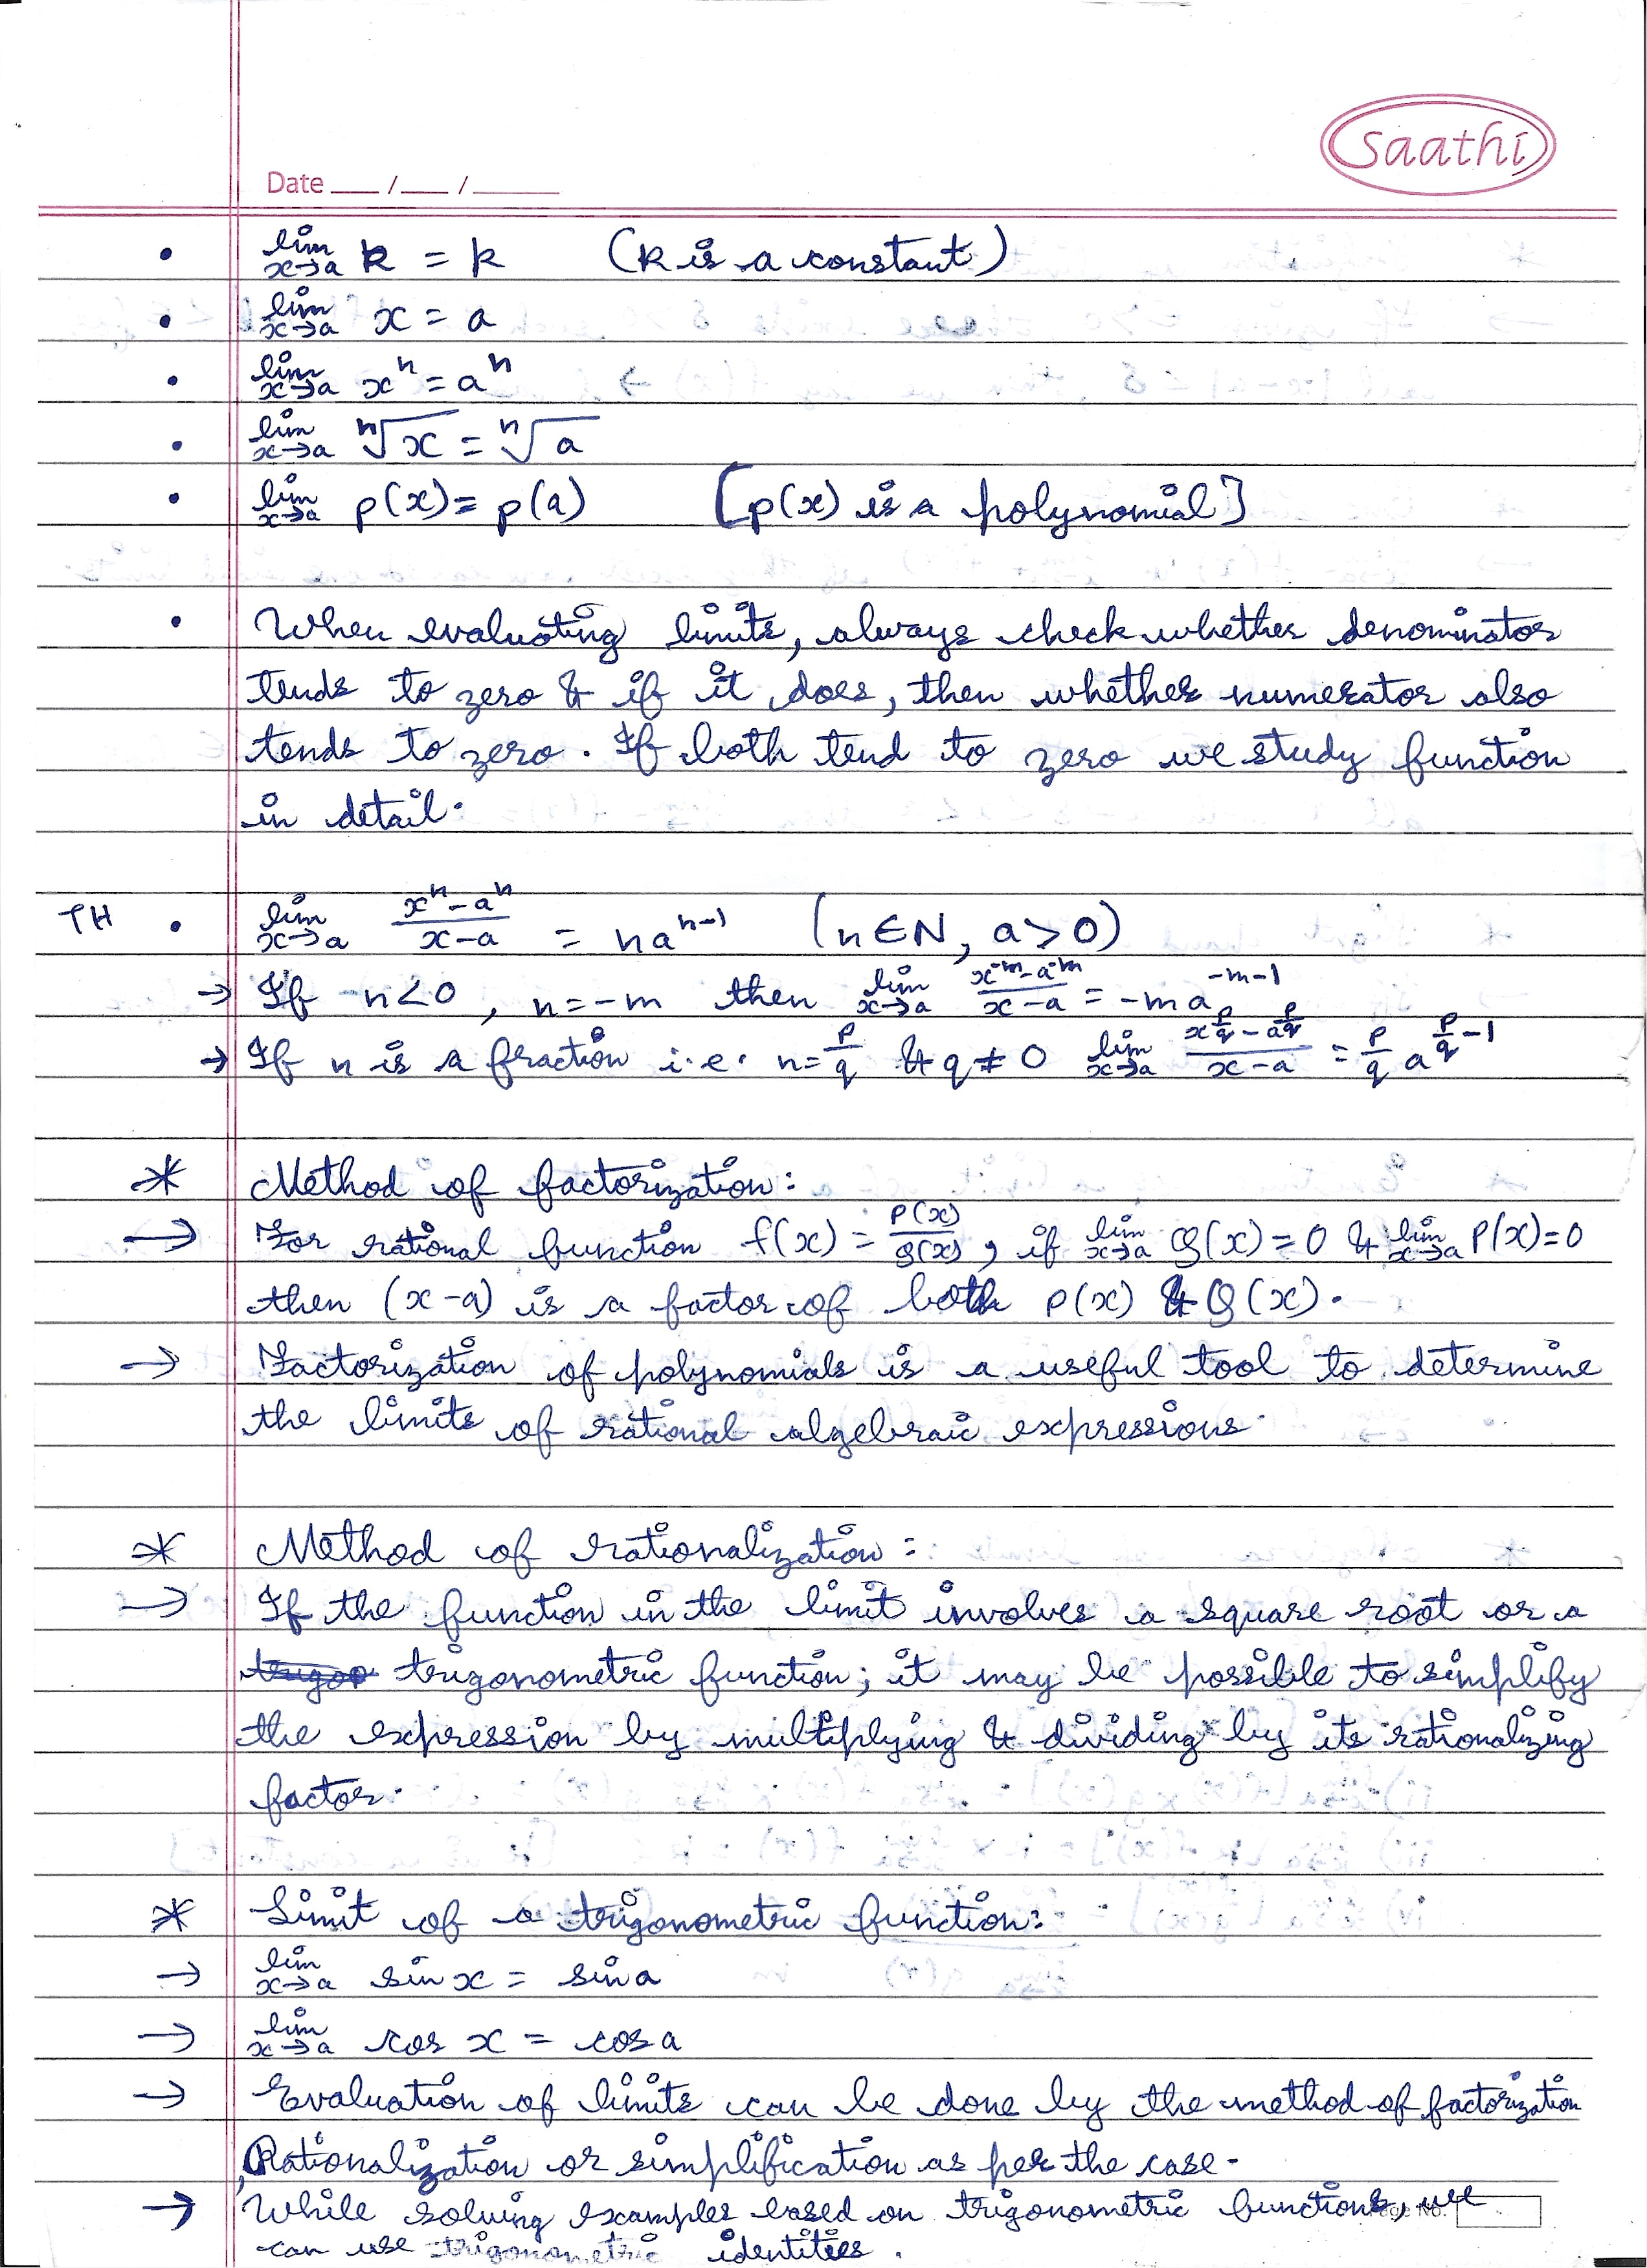 Saathi
Date ___ / ___ / ______
• lim x→a k = k (k is a constant)
• lim x→a x = a
• lim x→a xⁿ = aⁿ
• lim x→a ⁿ√x = ⁿ√a
• lim x→a p(x) = p(a) [p(x) is a polynomial]
• When evaluating limits, always check whether denominator
tends to zero & if it does, then whether numerator also
tends to zero. If both tend to zero we study function
in detail.
TH • lim x→a (xⁿ-aⁿ)/(x-a) = naⁿ⁻¹ (n∈N, a>0)
→ If n<0, n=-m then lim x→a (x^-m - a^-m)/(x-a) = -m a^(-m-1)
→ If n is a fraction i.e. n=p/q & q≠0 lim x→a (x^(p/q) - a^(p/q))/(x-a) = p/q a^(p/q - 1)
* Method of factorization:
→ For rational function f(x) = P(x)/Q(x), if lim x→a Q(x)=0 & lim x→a P(x)=0
then (x-a) is a factor of both P(x) & Q(x).
→ Factorization of polynomials is a useful tool to determine
the limits of rational algebraic expressions.
* Method of rationalization:
→ If the function in the limit involves a square root or a
trigonometric function; it may be possible to simplify
the expression by multiplying & dividing by its rationalizing
factor.
* Limit of a trigonometric function:
→ lim x→a sin x = sin a
→ lim x→a cos x = cos a
→ Evaluation of limits can be done by the method of factorization
, Rationalization or simplification as per the case.
→ While solving examples based on trigonometric functions, we
can use trigonometric identities.